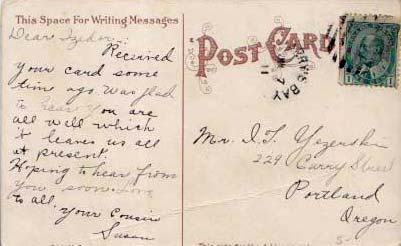 This Space For Writing Messages
Dear Izidor:
Received
your card some
time ago was glad
to hear you are
all well which
it leaves us all
at present.
Hoping to hear from
you soon Love
to all. your Cousin
Susan
POST CARD
BAY
Mr. I. T. Yezerski
229 Curry Street
Portland
Oregon